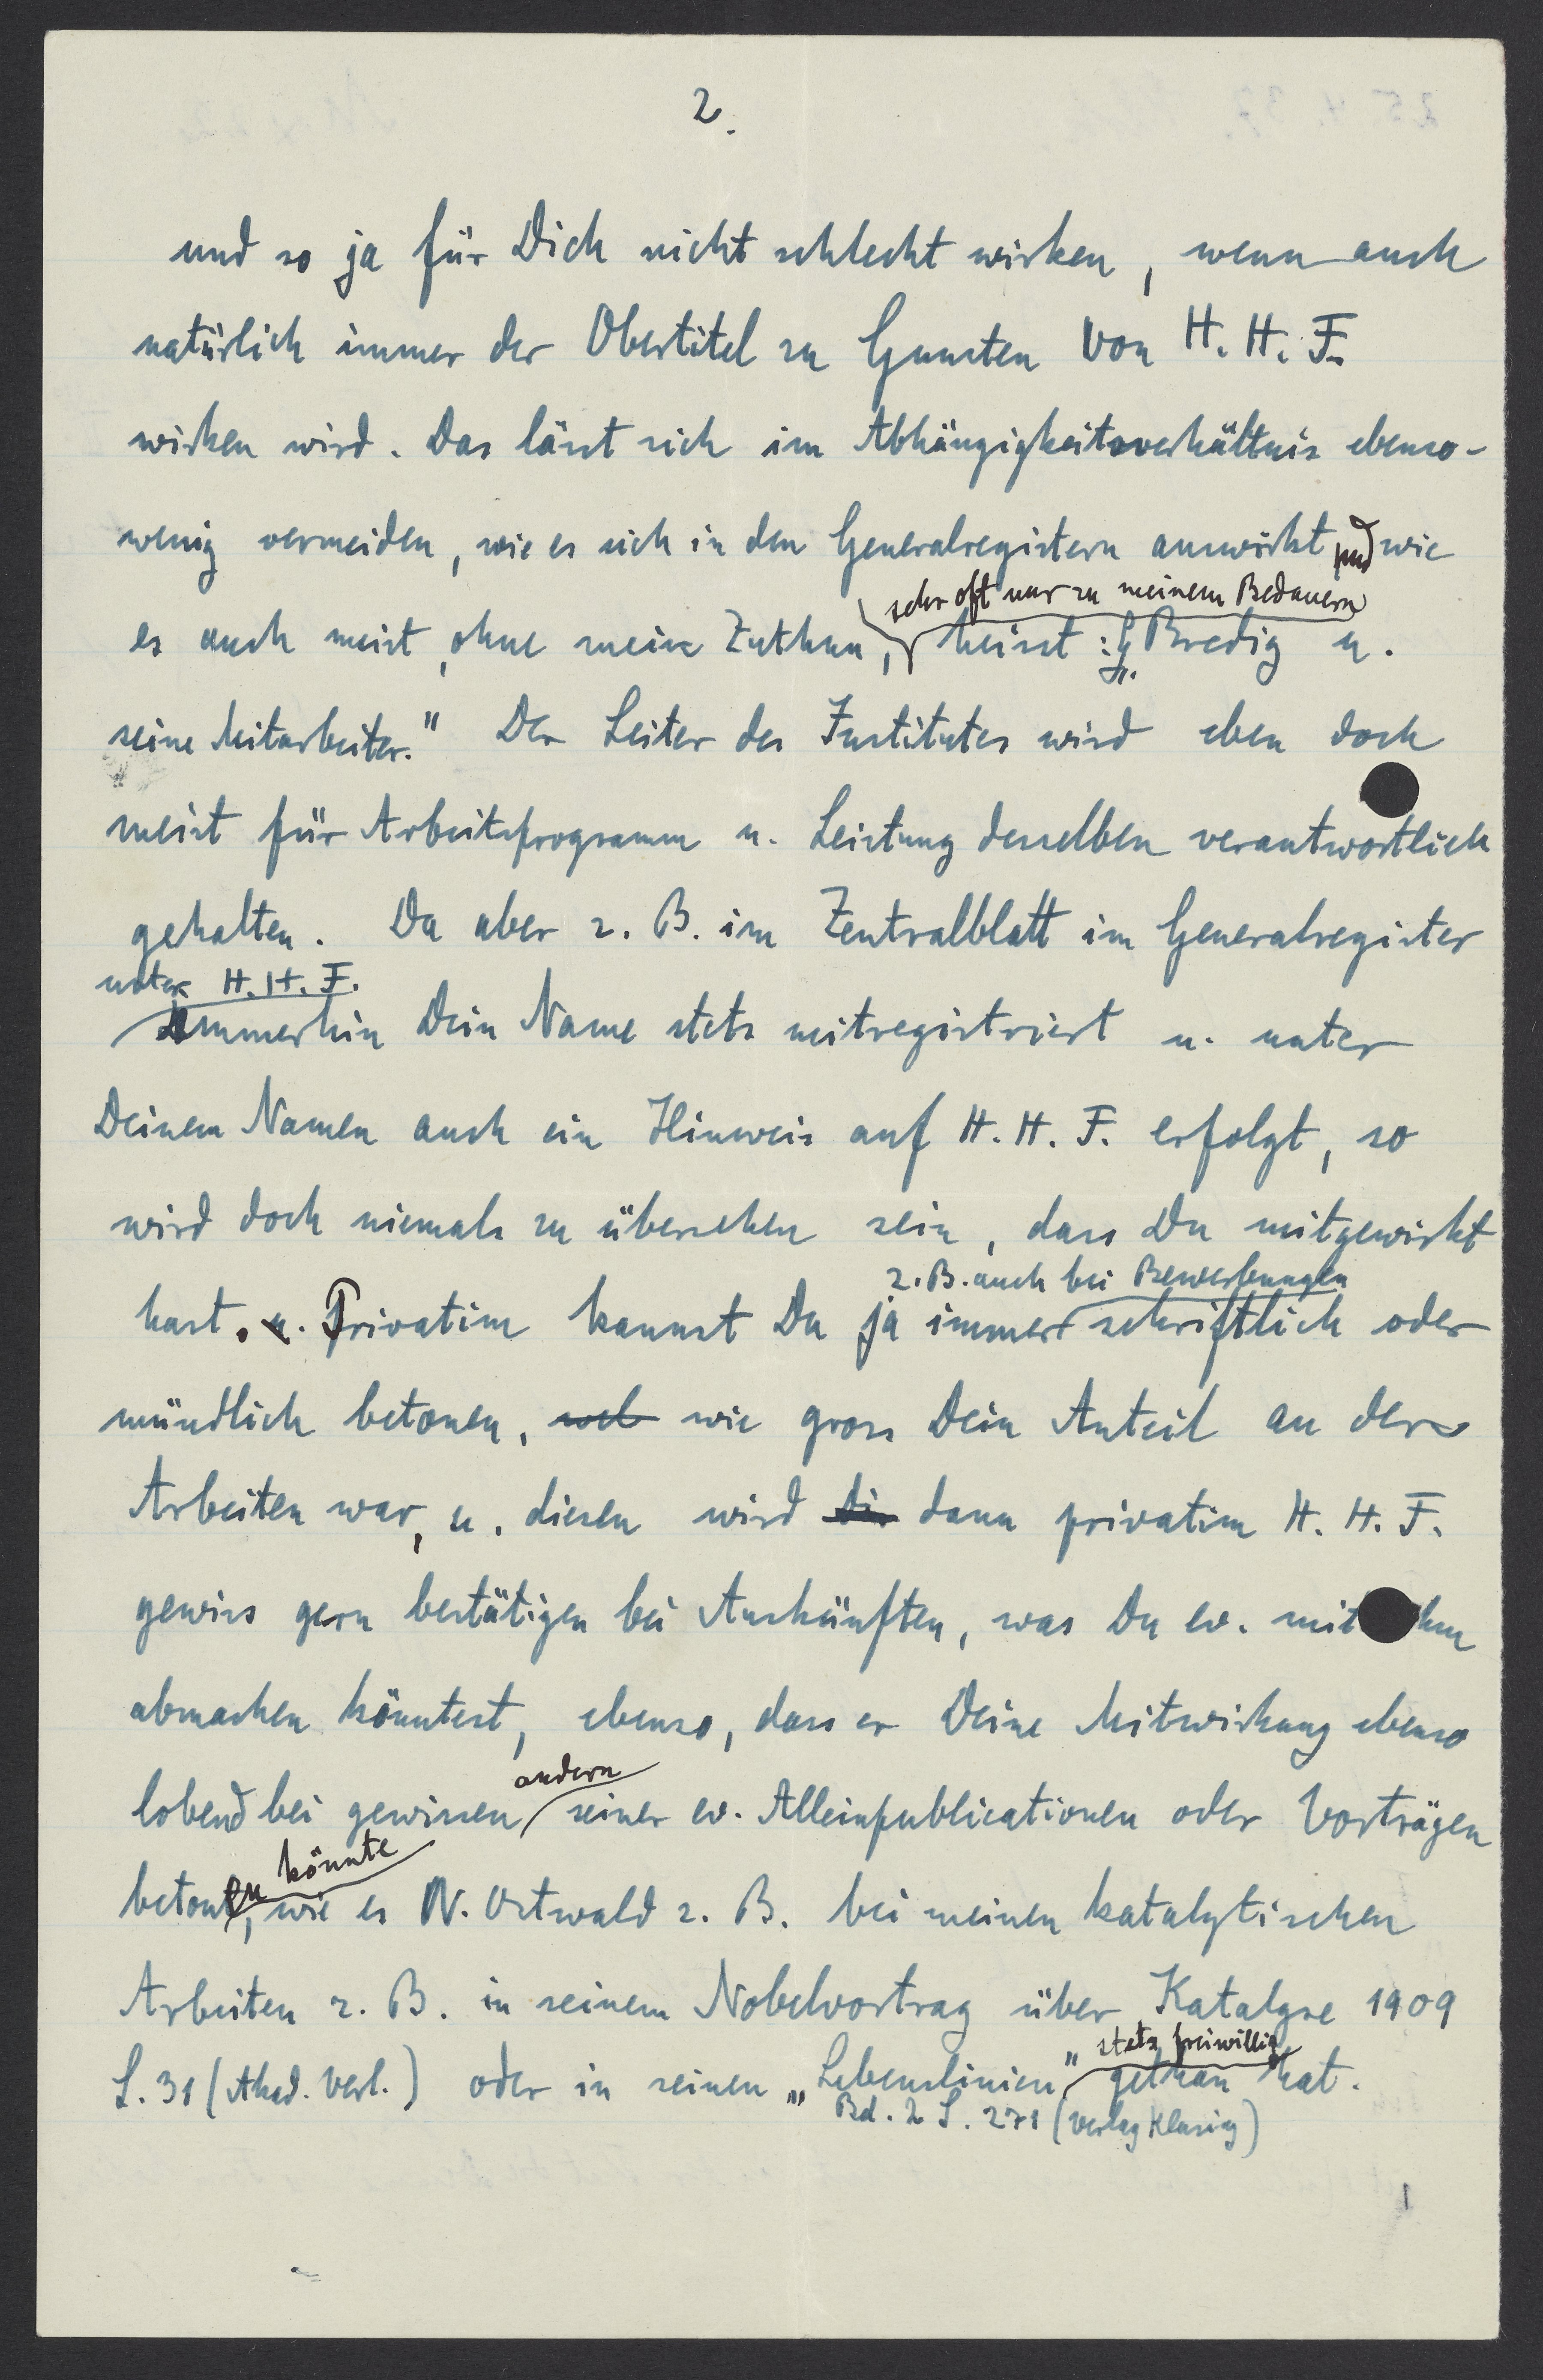 2.
und so ja für Dich nicht schlecht wirken, wenn auch
natürlich immer der Obertitel zu Gunsten von H. H. F.
wirken wird. Das lässt sich im Abhängigkeitsverhältnis ebenso-
wenig vermeiden, wie es sich in den Generalregistern auswirkt und wie
sehr oft nur zu meinem Bedauern
es auch meist, ohne mein Zuthun, heisst: „G. Bredig u.
seine Mitarbeiter." Der Leiter des Institutes wird eben doch
meist für Arbeitsprogramm u. Leistung desselben verantwortlich
gehalten. Da aber z. B. im Zentralblatt im Generalregister
unter H. H. F.
immerhin Dein Name stets mitregistriert u. unter
Deinem Namen auch ein Hinweis auf H. H. F. erfolgt, so
wird doch niemals zu übersehen sein, dass Du mitgewirkt
z. B. auch bei Bewerbungen
hast. u. Privatim kannst Du ja immer schriftlich oder
mündlich betonen, wel wie gross Dein Anteil an den
Arbeiten war, u. diesen wird di dann privatim H. H. F.
gewiss gern bestätigen bei Auskünften, was Du ev. mit hm
abmachen könntest, ebenso, dass er Deine Mitwirkung ebenso
andern
lobend bei gewissen seiner ev. Alleinpublicationen oder Vorträgen
könnte
betonen, wie es W. Ostwald z. B. bei meinen katalytischen
Arbeiten z. B. in seinem Nobelvortrag über Katalyse 1909
stets freiwillig
S. 31 (Akad. Verl.) oder in seinen „Lebenslinien" gethan hat.
Bd. 2 S. 271 (Verlag Klasing)